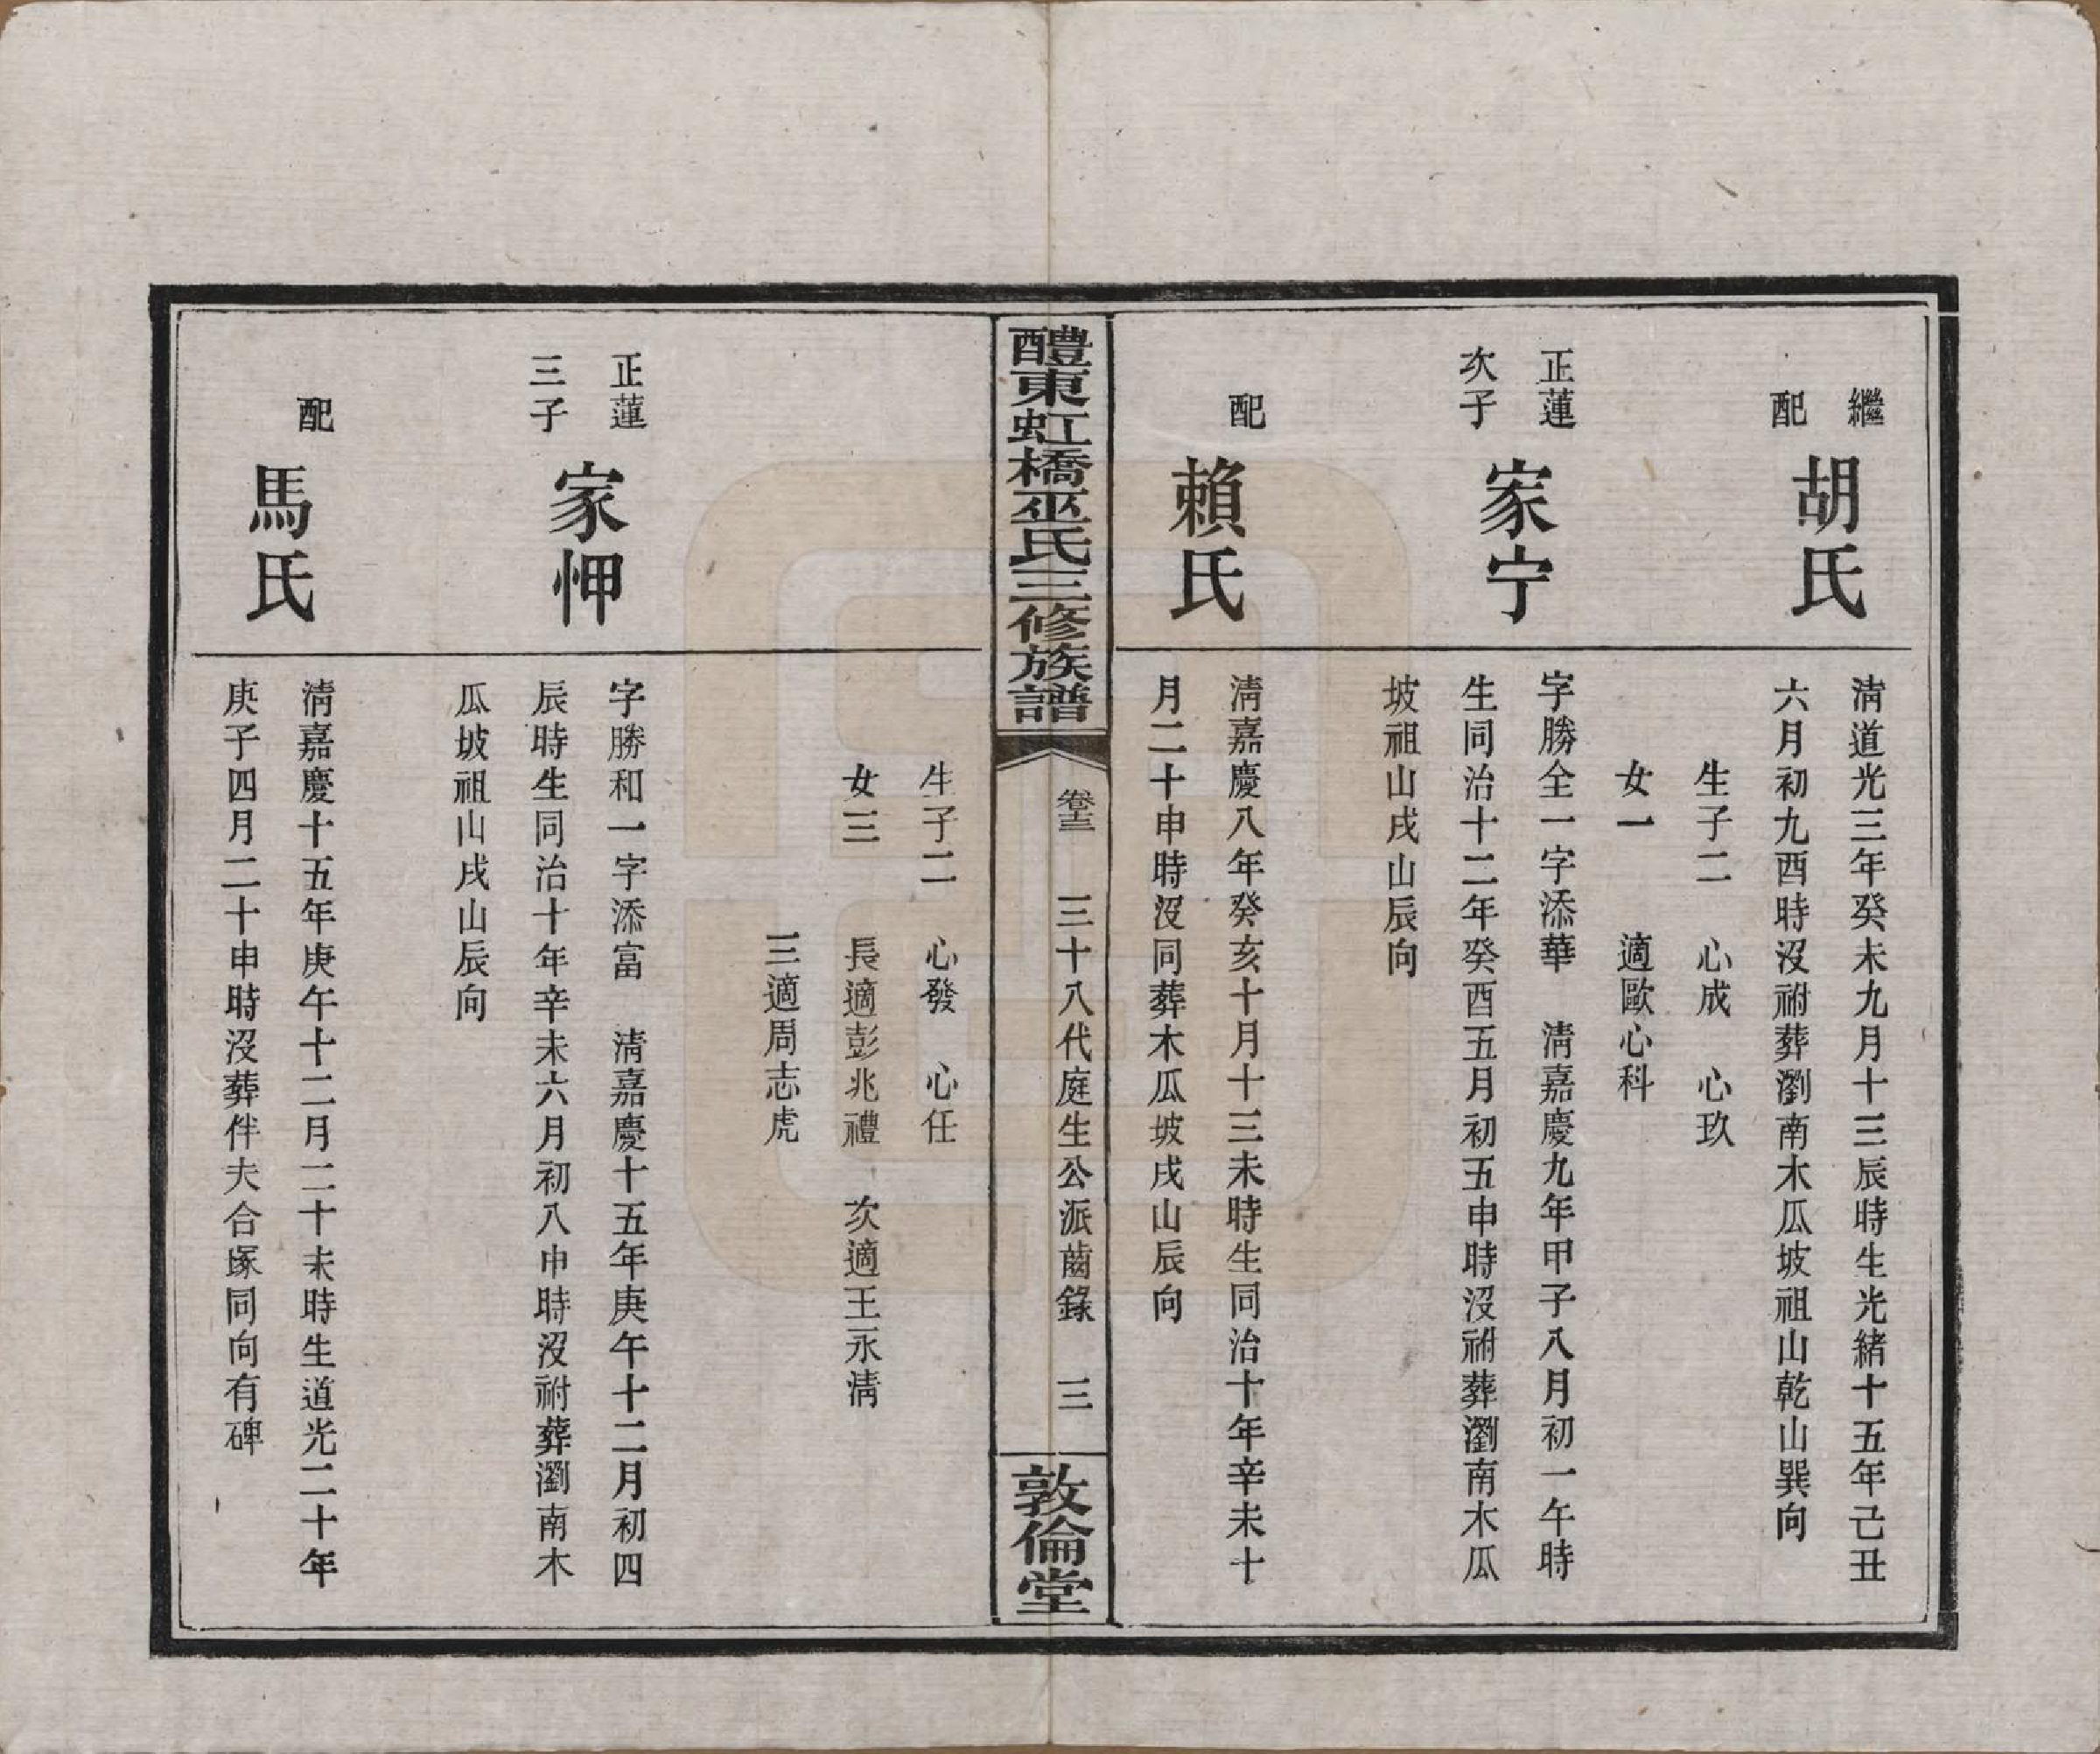 繼
配
胡氏
清道光三年癸未九月十三辰時生光緒十五年己丑
六月初九酉時沒祔葬瀏南木瓜坡祖山乾山巽向
生子二　心成　心玖
女一　　適歐心科
正蓮
次子
家宁
字勝全一字添華　清嘉慶九年甲子八月初一午時
生同治十二年癸酉五月初五申時沒祔葬瀏南木瓜
坡祖山戌山辰向
配
賴氏
清嘉慶八年癸亥十月十三未時生同治十年辛未十
月二十申時沒同葬木瓜坡戌山辰向
醴東虹橋巫氏三修族譜
卷十三
三十八代庭生公派齒錄　三
敦倫堂
生子二　心發　心任
女三　　長適彭兆禮　次適王永清
三適周志虎
正蓮
三子
家㤉
字勝和一字添富　清嘉慶十五年庚午十二月初四
辰時生同治十年辛未六月初八申時沒祔葬瀏南木
瓜坡祖山戌山辰向
配
馬氏
清嘉慶十五年庚午十二月二十未時生道光二十年
庚子四月二十申時沒葬伴夫合塚同向有碑